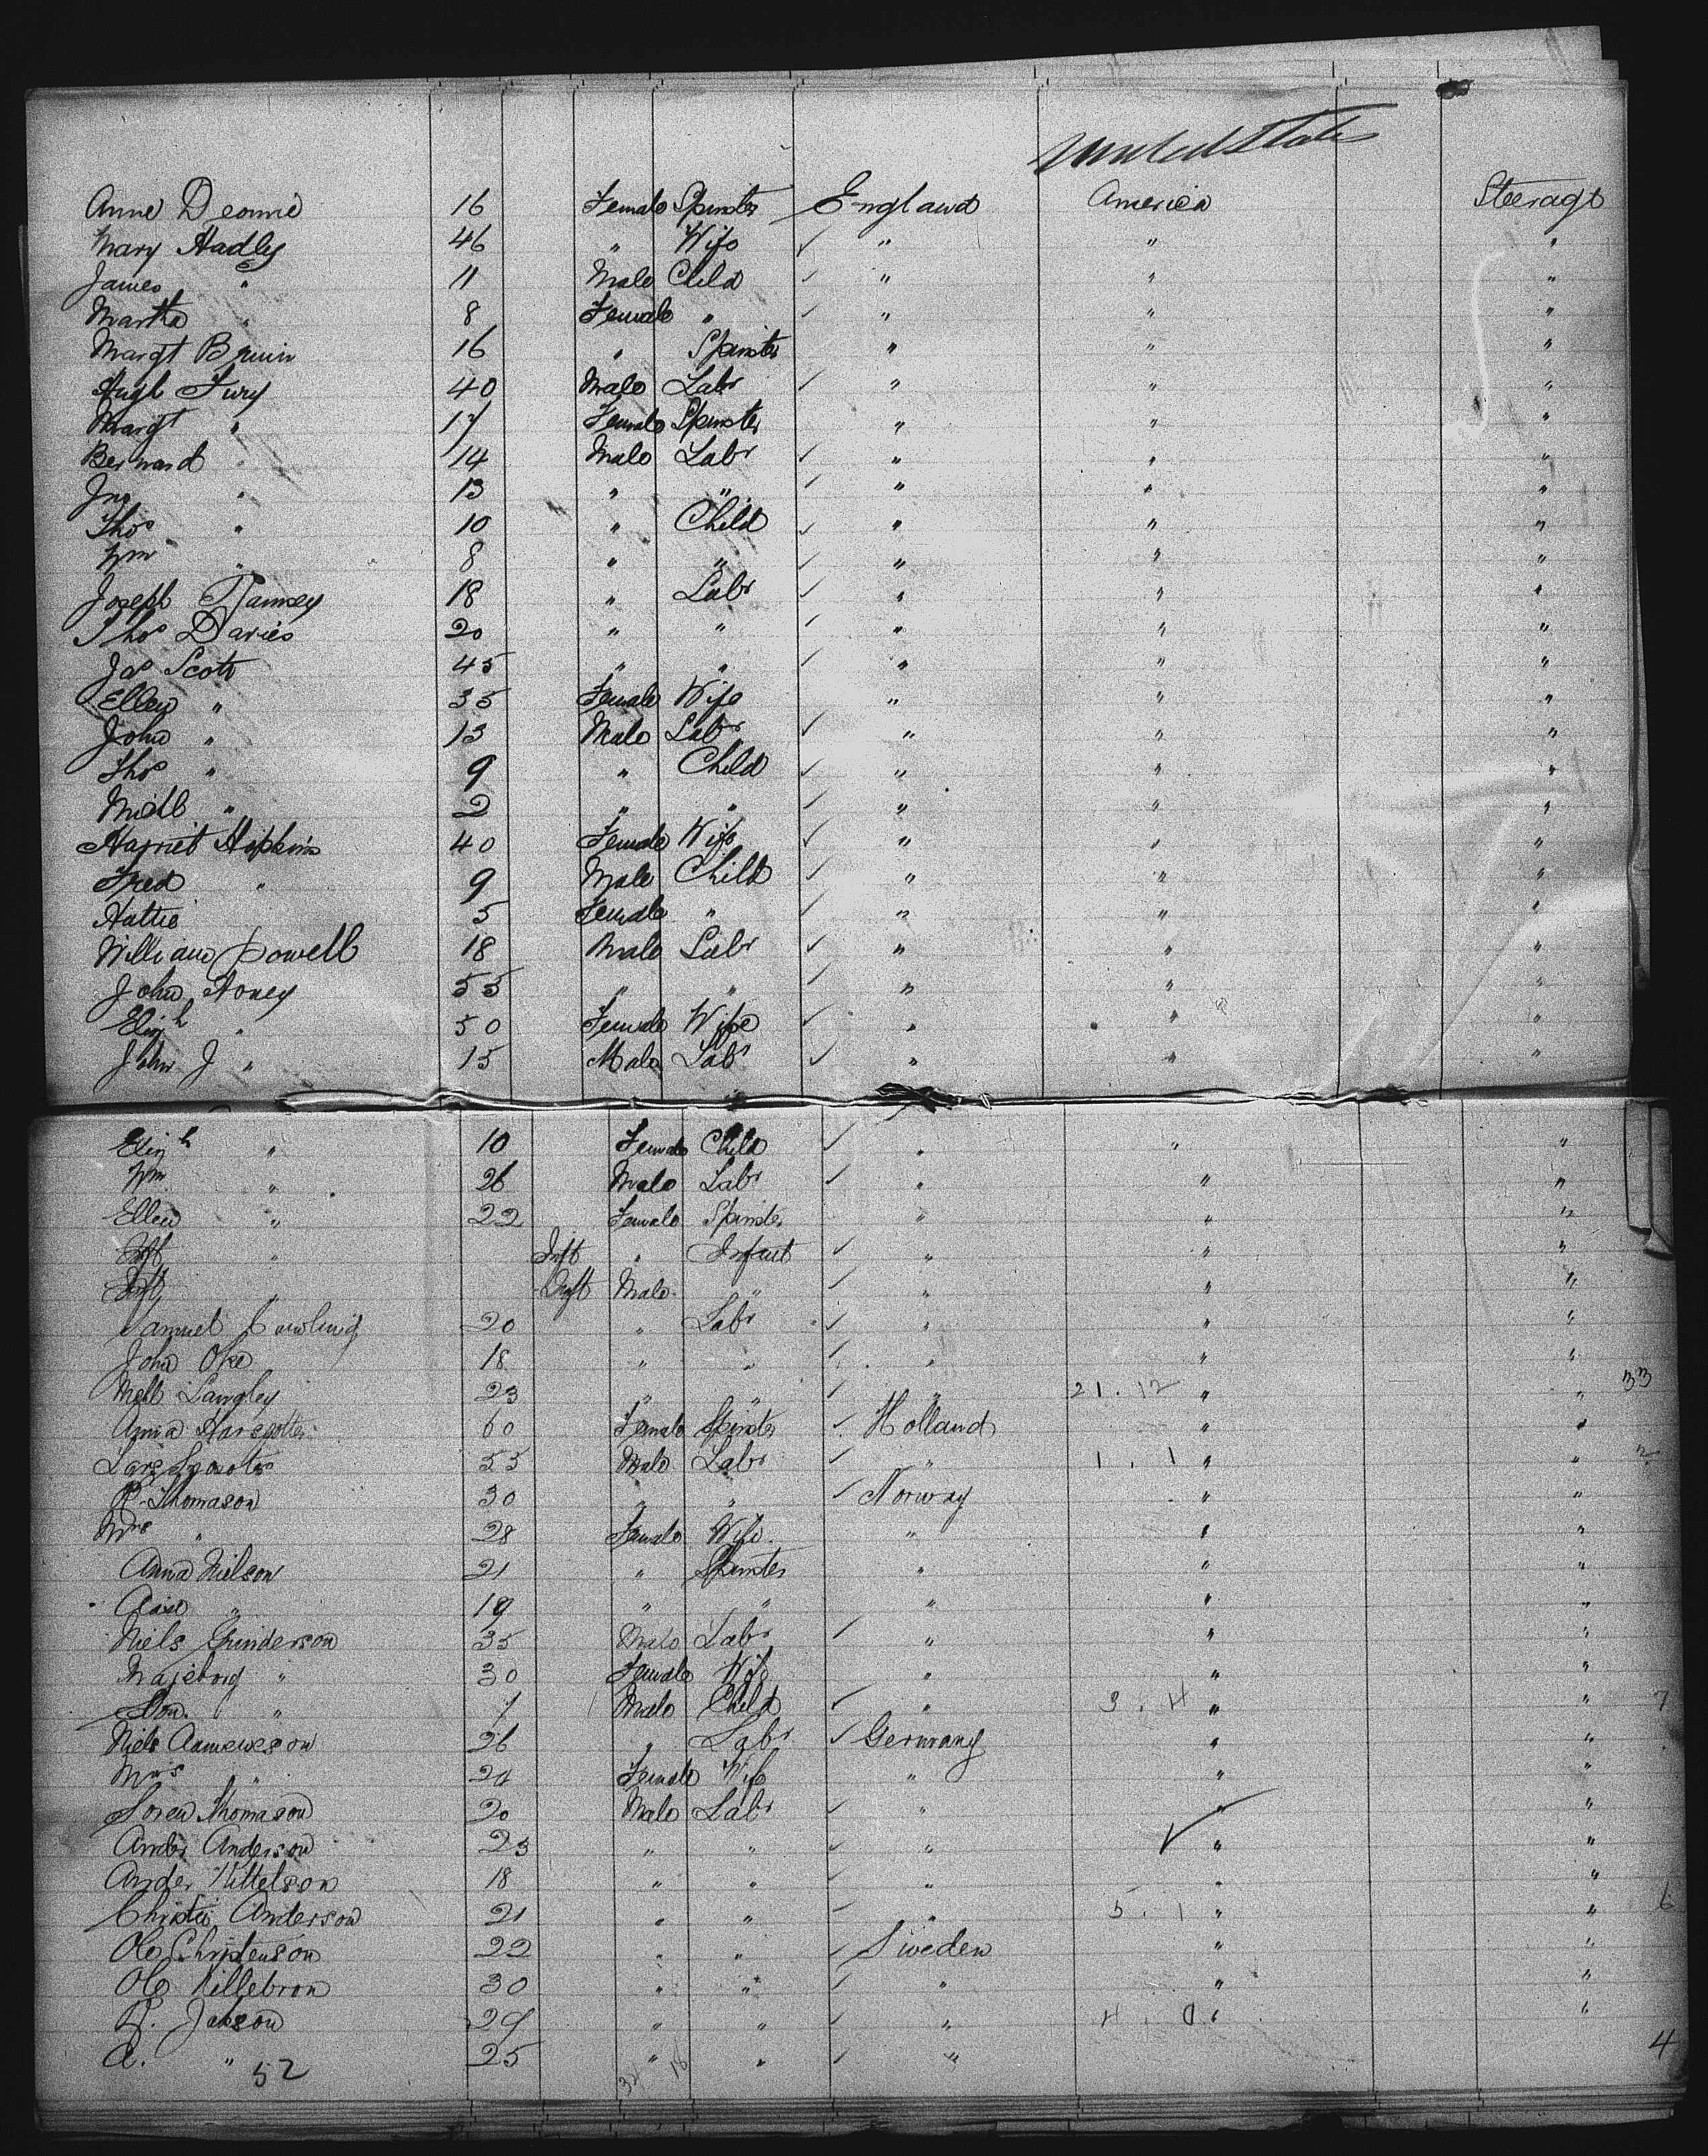 United States
Anne Deonie 16 Female Spinster England America Steerage
Mary Hadley 46 " Wife ✓ " " "
James " 11 Male Child ✓ " " "
Martha " 8 Female " ✓ " " "
Margt Bruin 16 " Spinster " " "
Hugh Fury 40 Male Labr ✓ " " "
Margt " 17 Female Spinster " " "
Bernard " 14 Male Labr ✓ " " "
Jno " 13 " " ✓ " " "
Thos " 10 " Child ✓ " " "
Wm " 8 " " ✓ " " "
Joseph Ramsey 18 " Labr ✓ " " "
Thos Davies 20 " " ✓ " " "
Jas Scott 45 " " ✓ " " "
Ellen " 35 Female Wife " " "
John " 13 Male Labr ✓ " " "
Thos " 9 " Child ✓ " " "
Michl " 2 " " ✓ " " "
Harriet Hopkins 40 Female Wife ✓ " " "
Fred " 9 Male Child ✓ " " "
Hattie 5 Female " ✓ " " "
William Powell 18 Male Labr ✓ " " "
John Honey 55 " " ✓ " " "
Elizh " 50 Female Wife ✓ " " "
John J " 15 Male Labr ✓ " " "
Elizh " 10 Female Child ✓ " " "
Wm " 26 Male Labr ✓ " " "
Ellen " 22 Female Spinster " " "
Inft " Inft " Infant ✓ " " "
Inft " Inft Male " ✓ " " "
Samuel 20 " Labr ✓ " " "
John Oke 18 " " ✓ " " "
Langley 23 " " ✓ " 21.12 " " 33
Anna 60 Female Spinster ✓ Holland " "
Lars 55 Male Labr ✓ " 1.1 " " 2
R. Thomason 30 " " ✓ Norway " "
Mrs " 28 Female Wife " " "
Anna Nielson 21 " Spinster " " "
" 19 " " " " "
Niels Gunderson 35 Male Labr ✓ " " "
" 30 Female Wife " " "
Son " 7 Male Child ✓ " 3.4 " " 7
Niels 26 " Labr ✓ Germany " "
Mrs " 24 Female Wife " " "
Soren Thomason 20 Male Labr ✓ " " "
Ander Anderson 23 " " ✓ " ✓ " "
Ander Kittelson 18 " " ✓ " " "
Christie Anderson 21 " " ✓ " 5.1 " " 6
Ole Christenson 22 " " ✓ Sweden " "
Ole Killebron 30 " " ✓ " " "
Jakson 29 " " ✓ " 4.0 " "
A. " 25 " " ✓ " 4
52 34 18